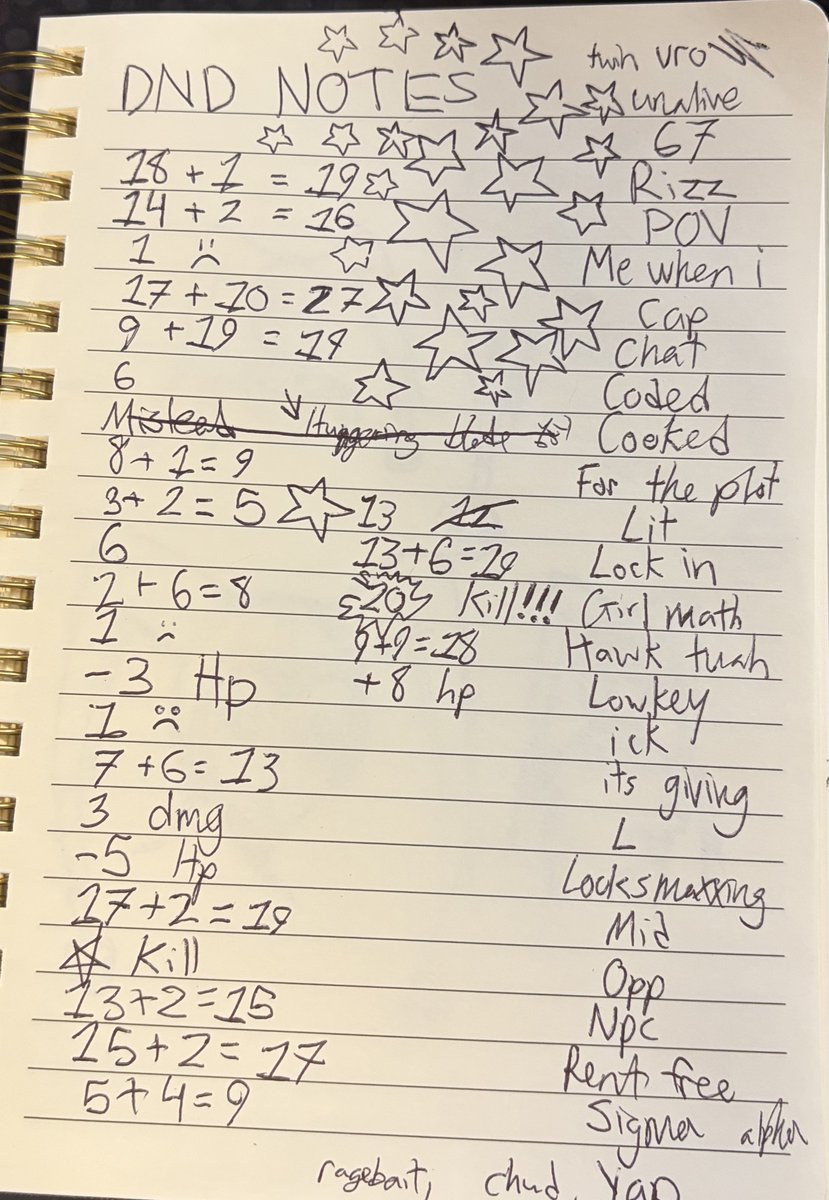 twin vro
DND NOTES
unalive
67
18 + 1 = 19
Rizz
14 + 2 = 16
POV
1
Me when i
17 + 10 = 27
Cap
9 + 19 = 19
Chat
6
Coded
Mislead
Cooked
8 + 1 = 9
For the plot
3 + 2 = 5 13 11
Lit
6 13+6=19
Lock in
2 + 6 = 8 20 Kill!!! Girl math
1 9+9=18 Hawk tuah
-3 Hp +8 hp Lowkey
1
ick
7 + 6 = 13
its giving
3 dmg
L
-5 Hp
Locksmaxxing
17+2 = 19
Mid
Kill
Opp
13+2=15
Npc
15+2=17
Rent free
5+4=9
Sigma alpha
ragebait, chud, Yap